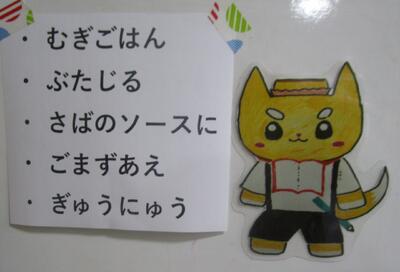 ・ むぎごはん
・ ぶたじる
・ さばのソースに
・ ごまずあえ
・ ぎゅうにゅう